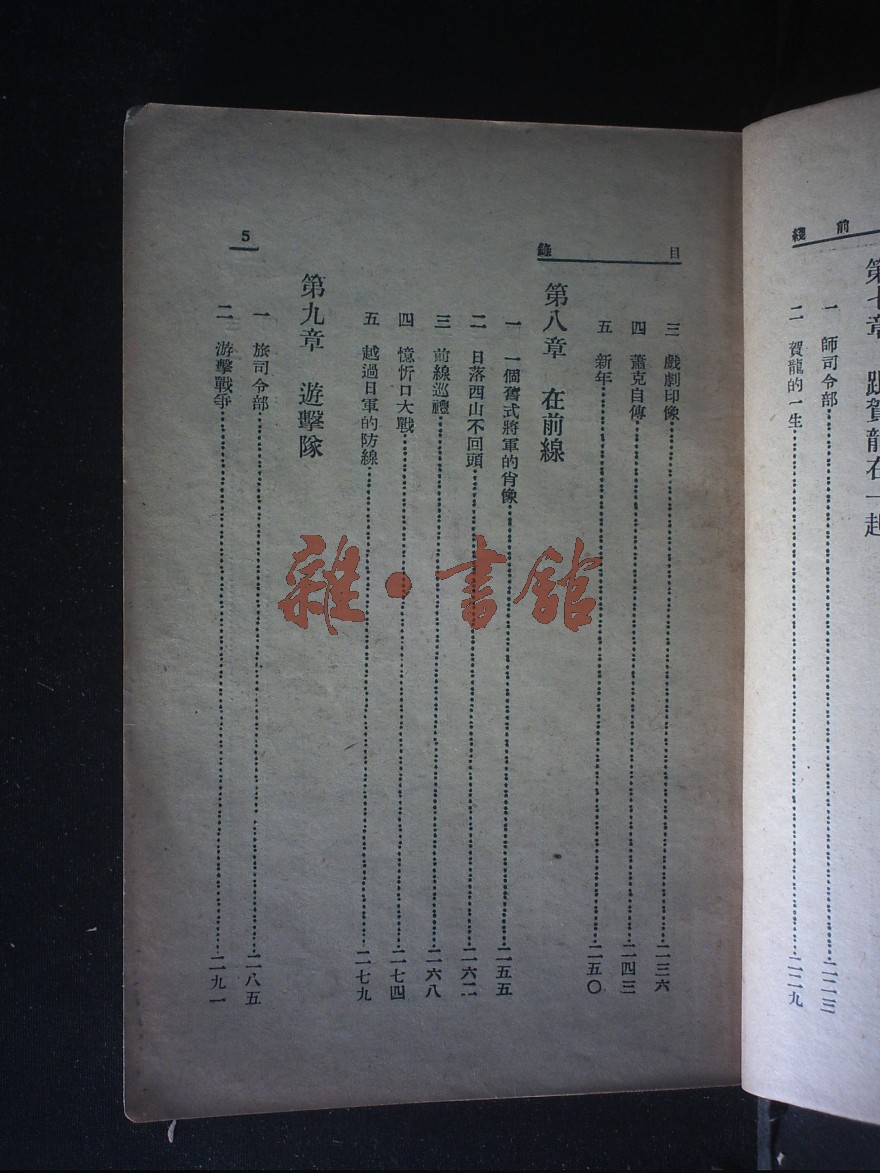 前綫
第七章 跟賀龍在一起
一 師司令部 二二三
二 賀龍的一生 二二九
目錄
三 戲劇印像 二三六
四 蕭克自傳 二四三
五 新年 二五〇
第八章 在前線
一 一個舊式將軍的肖像 二五五
二 日落西山不回頭 二六二
三 前線巡禮 二六八
四 憶忻口大戰 二七四
五 越過日軍的防線 二七九
第九章 遊擊隊
一 旅司令部 二八五
二 游擊戰爭 二九一
5
雜·書館